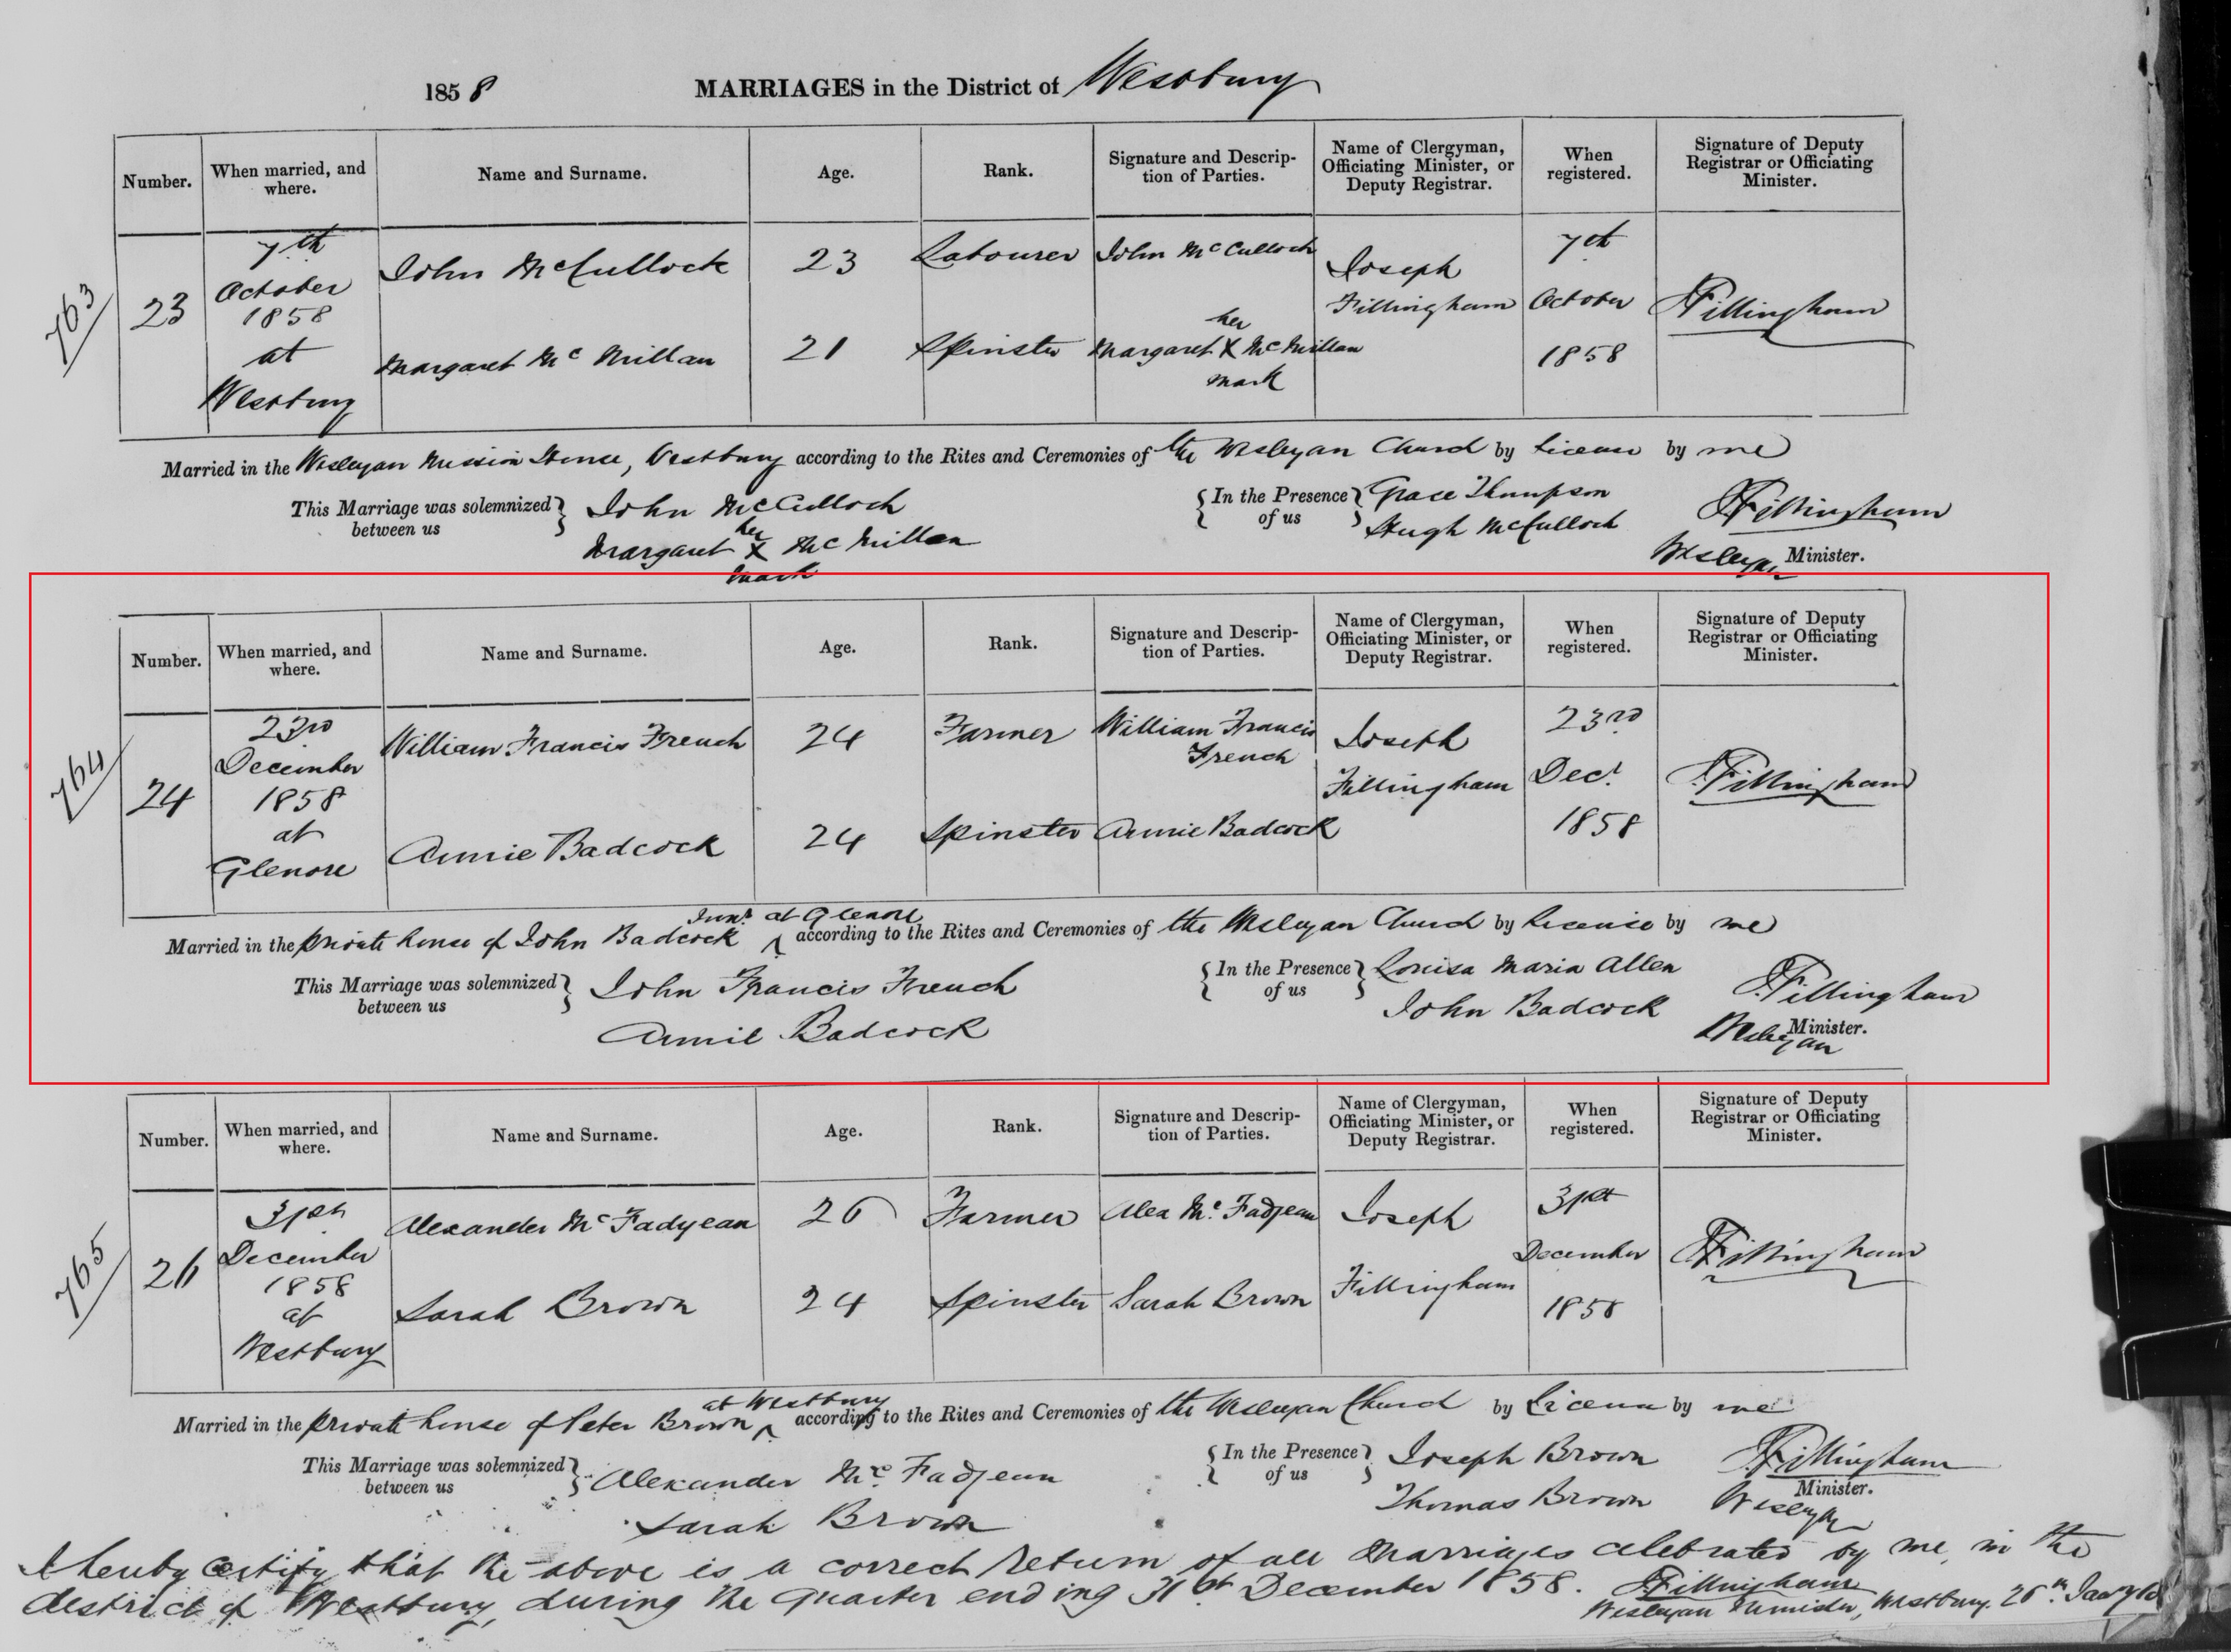 1858 MARRIAGES in the District of Westbury
Number. When married, and where. Name and Surname. Age. Rank. Signature and Description of Parties. Name of Clergyman, Officiating Minister, or Deputy Registrar. When registered. Signature of Deputy Registrar or Officiating Minister.
763
23
7th October 1858 at Westbury
John McCullock 23 Labourer John McCulloch
Margaret McMillan 21 Spinster Margaret X McMillan
her
mark
Joseph Fillingham
7th October 1858
J Fillingham
Married in the Wesleyan Mission House, Westbury according to the Rites and Ceremonies of the Wesleyan Church by License by me
This Marriage was solemnized between us } John McCulloch
her
Margaret X McMillan
mark
{ In the Presence of us } Grace Thompson
Hugh McCulloch
J Fillingham
Wesleyan Minister.
Number. When married, and where. Name and Surname. Age. Rank. Signature and Description of Parties. Name of Clergyman, Officiating Minister, or Deputy Registrar. When registered. Signature of Deputy Registrar or Officiating Minister.
764
24
23rd December 1858 at Glenore
William Francis French 24 Farmer William Francis French
Annie Badcock 24 Spinster Annie Badcock
Joseph Fillingham
23rd Decr 1858
J. Fillingham
Junr at Glenore
Married in the private house of John Badcock ^ according to the Rites and Ceremonies of the Wesleyan Church by License by me
This Marriage was solemnized between us } John Francis French
Annie Badcock
{ In the Presence of us } Louisa Maria Allen
John Badcock
J. Fillingham
Minister.
Wesleyan
Number. When married, and where. Name and Surname. Age. Rank. Signature and Description of Parties. Name of Clergyman, Officiating Minister, or Deputy Registrar. When registered. Signature of Deputy Registrar or Officiating Minister.
765
26
31st December 1858 at Westbury
Alexander McFadyean 26 Farmer Alex McFadyean
Sarah Brown 24 Spinster Sarah Brown
Joseph Fillingham
31st December 1858
J Fillingham
at Westbury
Married in the private house of Peter Brown ^ according to the Rites and Ceremonies of the Wesleyan Church by Licence by me
This Marriage was solemnized between us } Alexander McFadyean
Sarah Brown
{ In the Presence of us } Joseph Brown
Thomas Brown
J Fillingham
Minister.
Wesleyan
I hereby certify that the above is a correct return of all Marriages celebrated by me, in the
district of Westbury, during the quarter ending 31st December 1858. J Fillingham
Wesleyan Minister, Westbury. 26th Jany